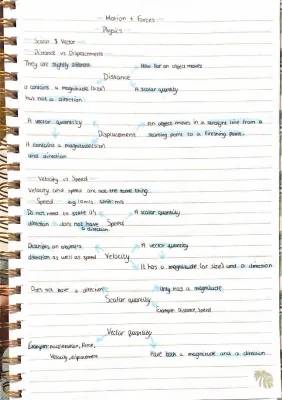 Motion + Forces
Physics
Scalar & Vector
Distance vs Displacement
They are slightly different
How far an object moves
Distance
It contains a magnitude (size)
A scalar quantity
but not a direction.
A vector quantity
An object moves in a straight line from a
Displacement
starting point to a finishing point.
It contains a magnitude (size)
and direction
Velocity vs Speed
Velocity and speed are not the same thing
Speed e.g 10m/s
Do not need to state it's
A scalar quantity
direction does not have
Speed
a direction
Describes an object's
A vector quantity
direction as well as speed
Velocity
It has a magnitude (or size) and a direction
Does not have a direction
Only has a magnitude
Scalar quantity
Example: Distance, Speed
Vector quantity
Example: acceleration, force,
Velocity, displacement
Have both a magnitude and a direction